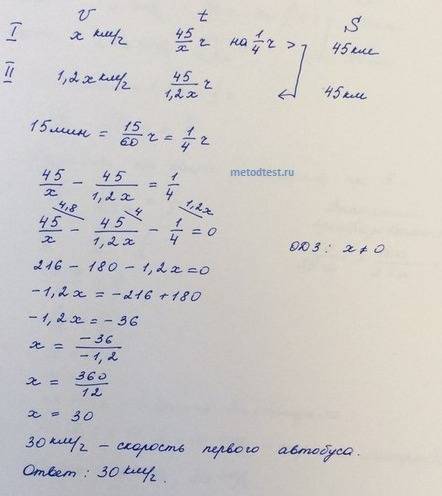 v t S
I x км/ч 45/x ч на 1/4 ч > 45 км
II 1,2x км/ч 45/1,2x ч 45 км
15 мин = 15/60 ч = 1/4 ч
metodtest.ru
45/x - 45/1,2x = 1/4
4,8 4 1,2x
45/x - 45/1,2x - 1/4 = 0
ОДЗ: x ≠ 0
216 - 180 - 1,2x = 0
-1,2x = -216 + 180
-1,2x = -36
x = -36/-1,2
x = 360/12
x = 30
30 км/ч – скорость первого автобуса.
Ответ: 30 км/ч.